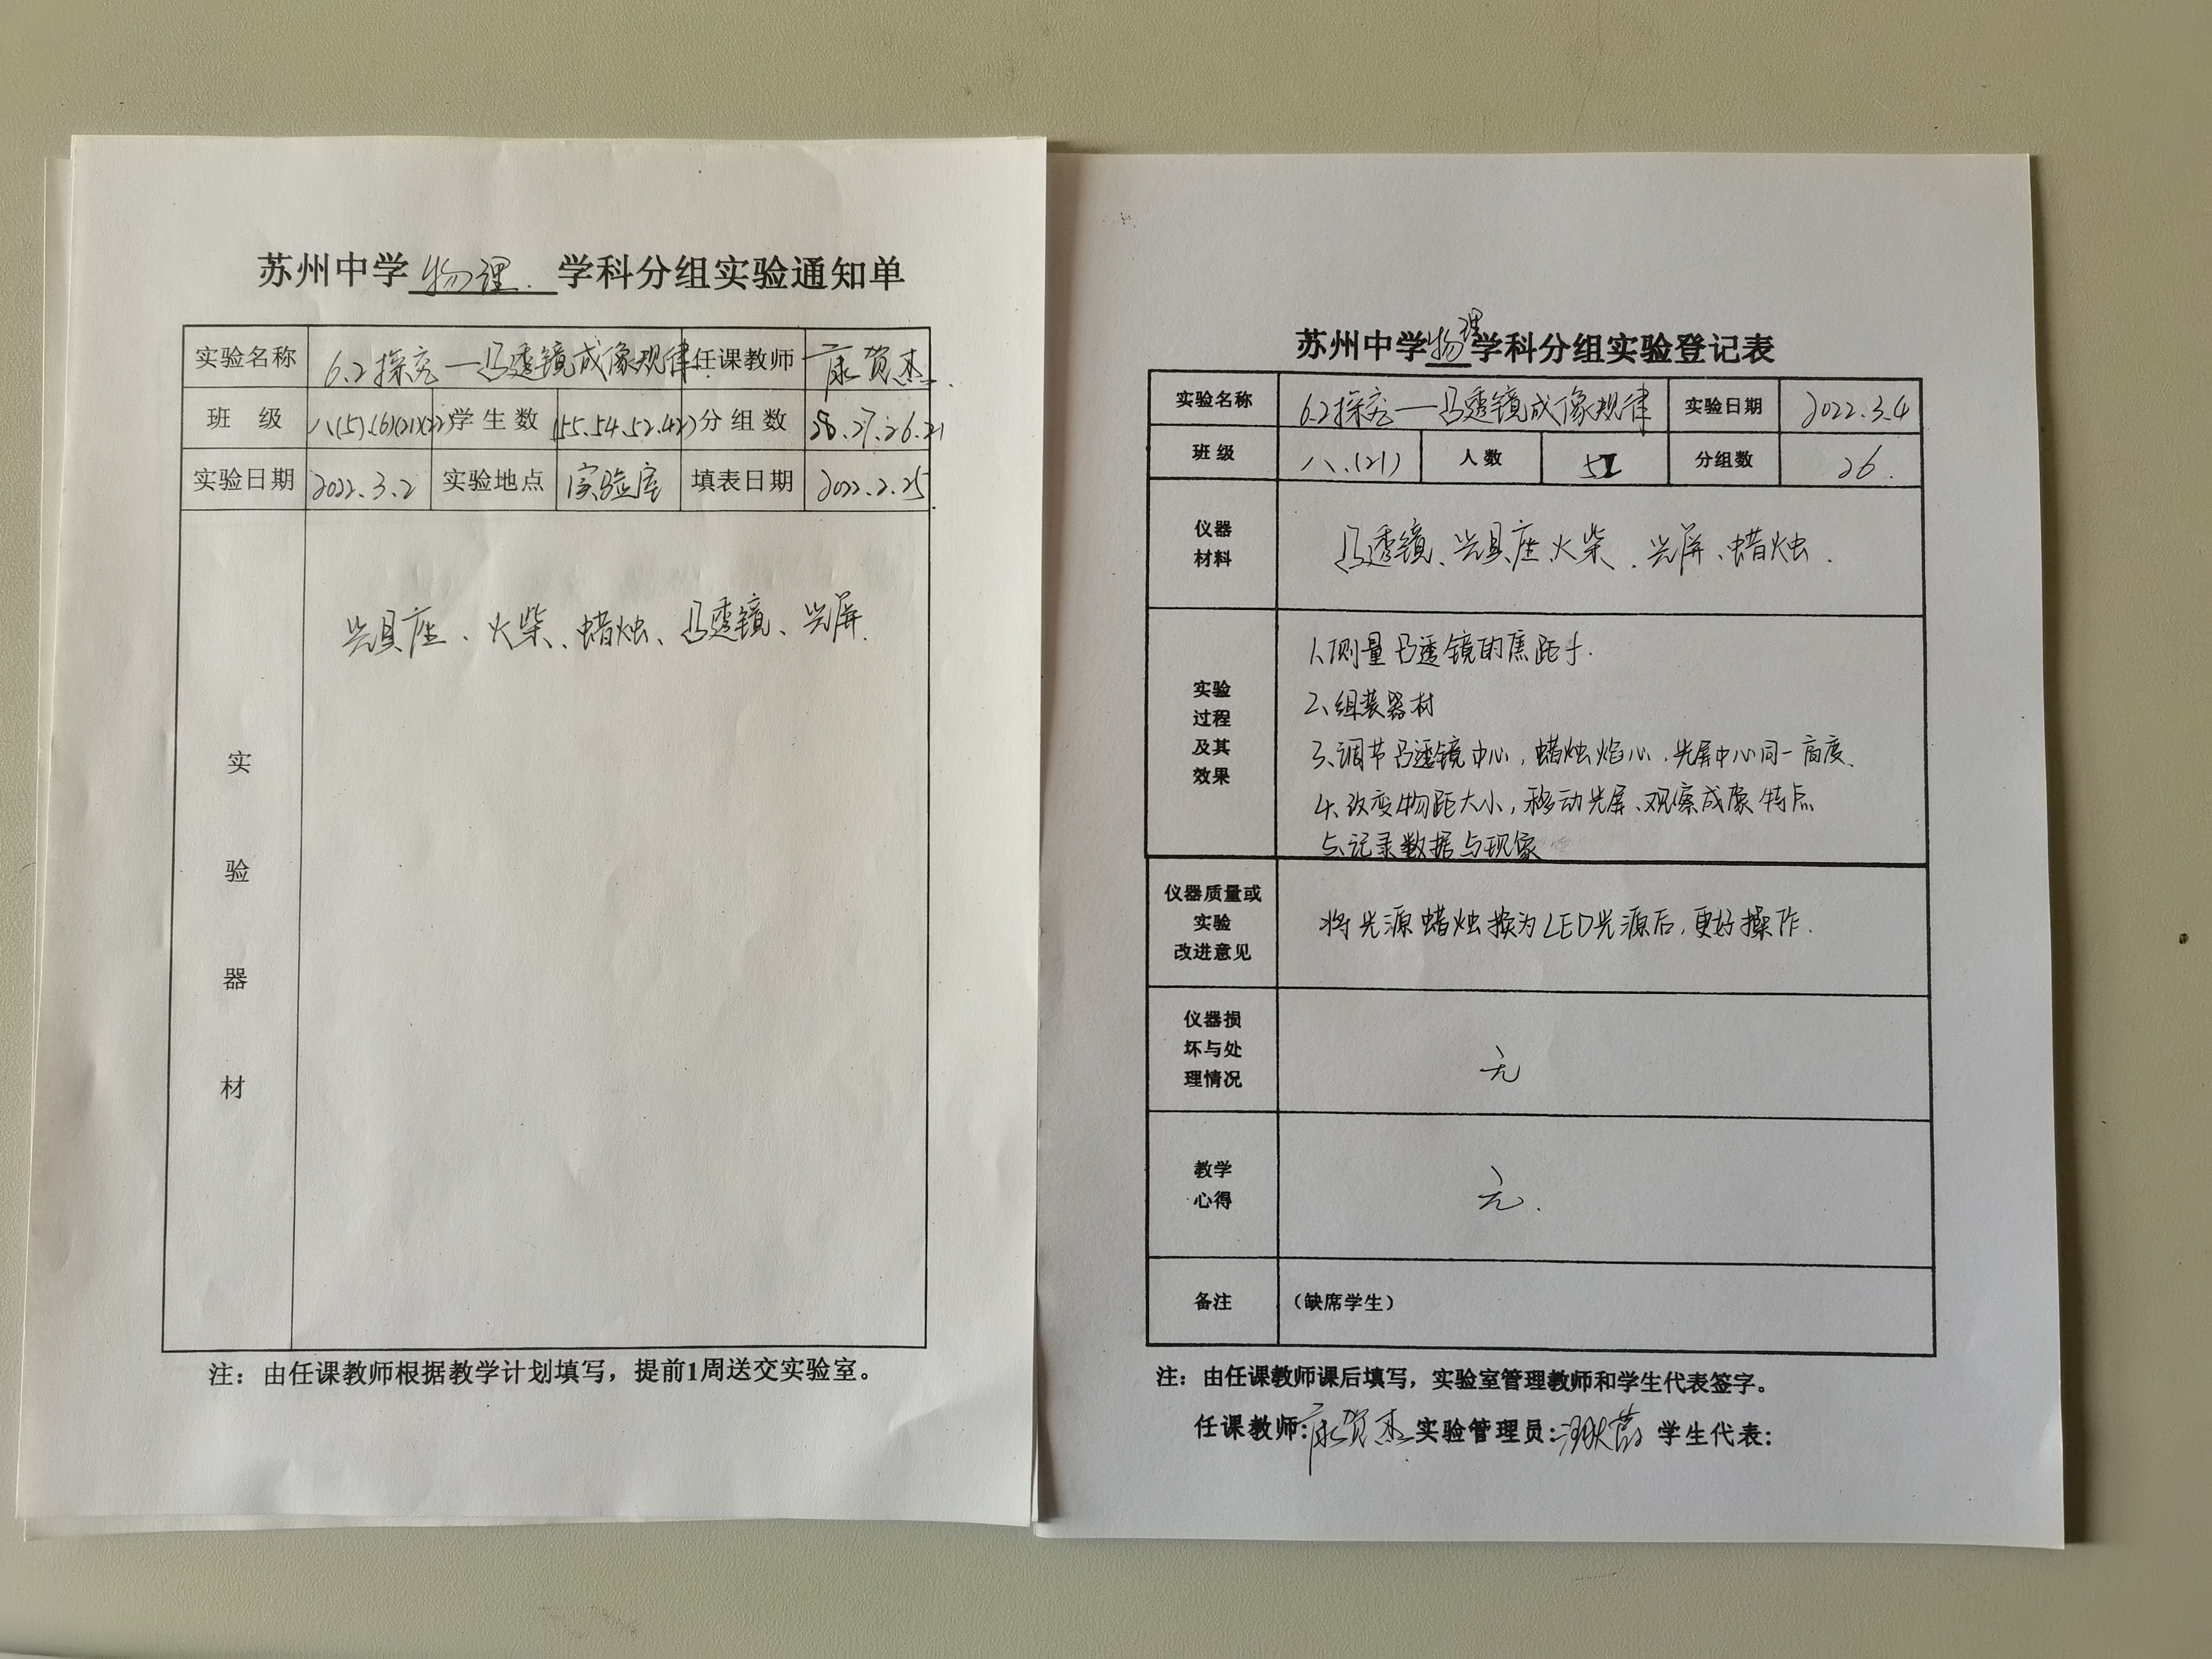 苏州中学物理学科分组实验通知单
实验名称 6.2探究—凸透镜成像规律 任课教师 康贺杰
班 级 八(5).(6)(21)(22) 学生数 (55.54.52.42) 分组数 28.27.26.21
实验日期 2022.3.2 实验地点 实验室 填表日期 2022.2.25
实验器材
光具座、火柴、蜡烛、凸透镜、光屏.
注：由任课教师根据教学计划填写，提前1周送交实验室。
苏州中学物理学科分组实验登记表
实验名称 6.2探究—凸透镜成像规律 实验日期 2022.3.4
班级 八.(21) 人数 52 分组数 26.
仪器材料 凸透镜、光具座、火柴、光屏、蜡烛.
实验过程及其效果
1、测量凸透镜的焦距f.
2、组装器材
3、调节凸透镜中心，蜡烛焰心、光屏中心同一高度、
4、改变物距大小，移动光屏、观察成像特点
5、记录数据与现象
仪器质量或实验改进意见 将光源蜡烛换为LED光源后，更好操作.
仪器损坏与处理情况 无
教学心得 无.
备注 （缺席学生）
注：由任课教师课后填写，实验室管理教师和学生代表签字。
任课教师:康贺杰 实验管理员: 学生代表: